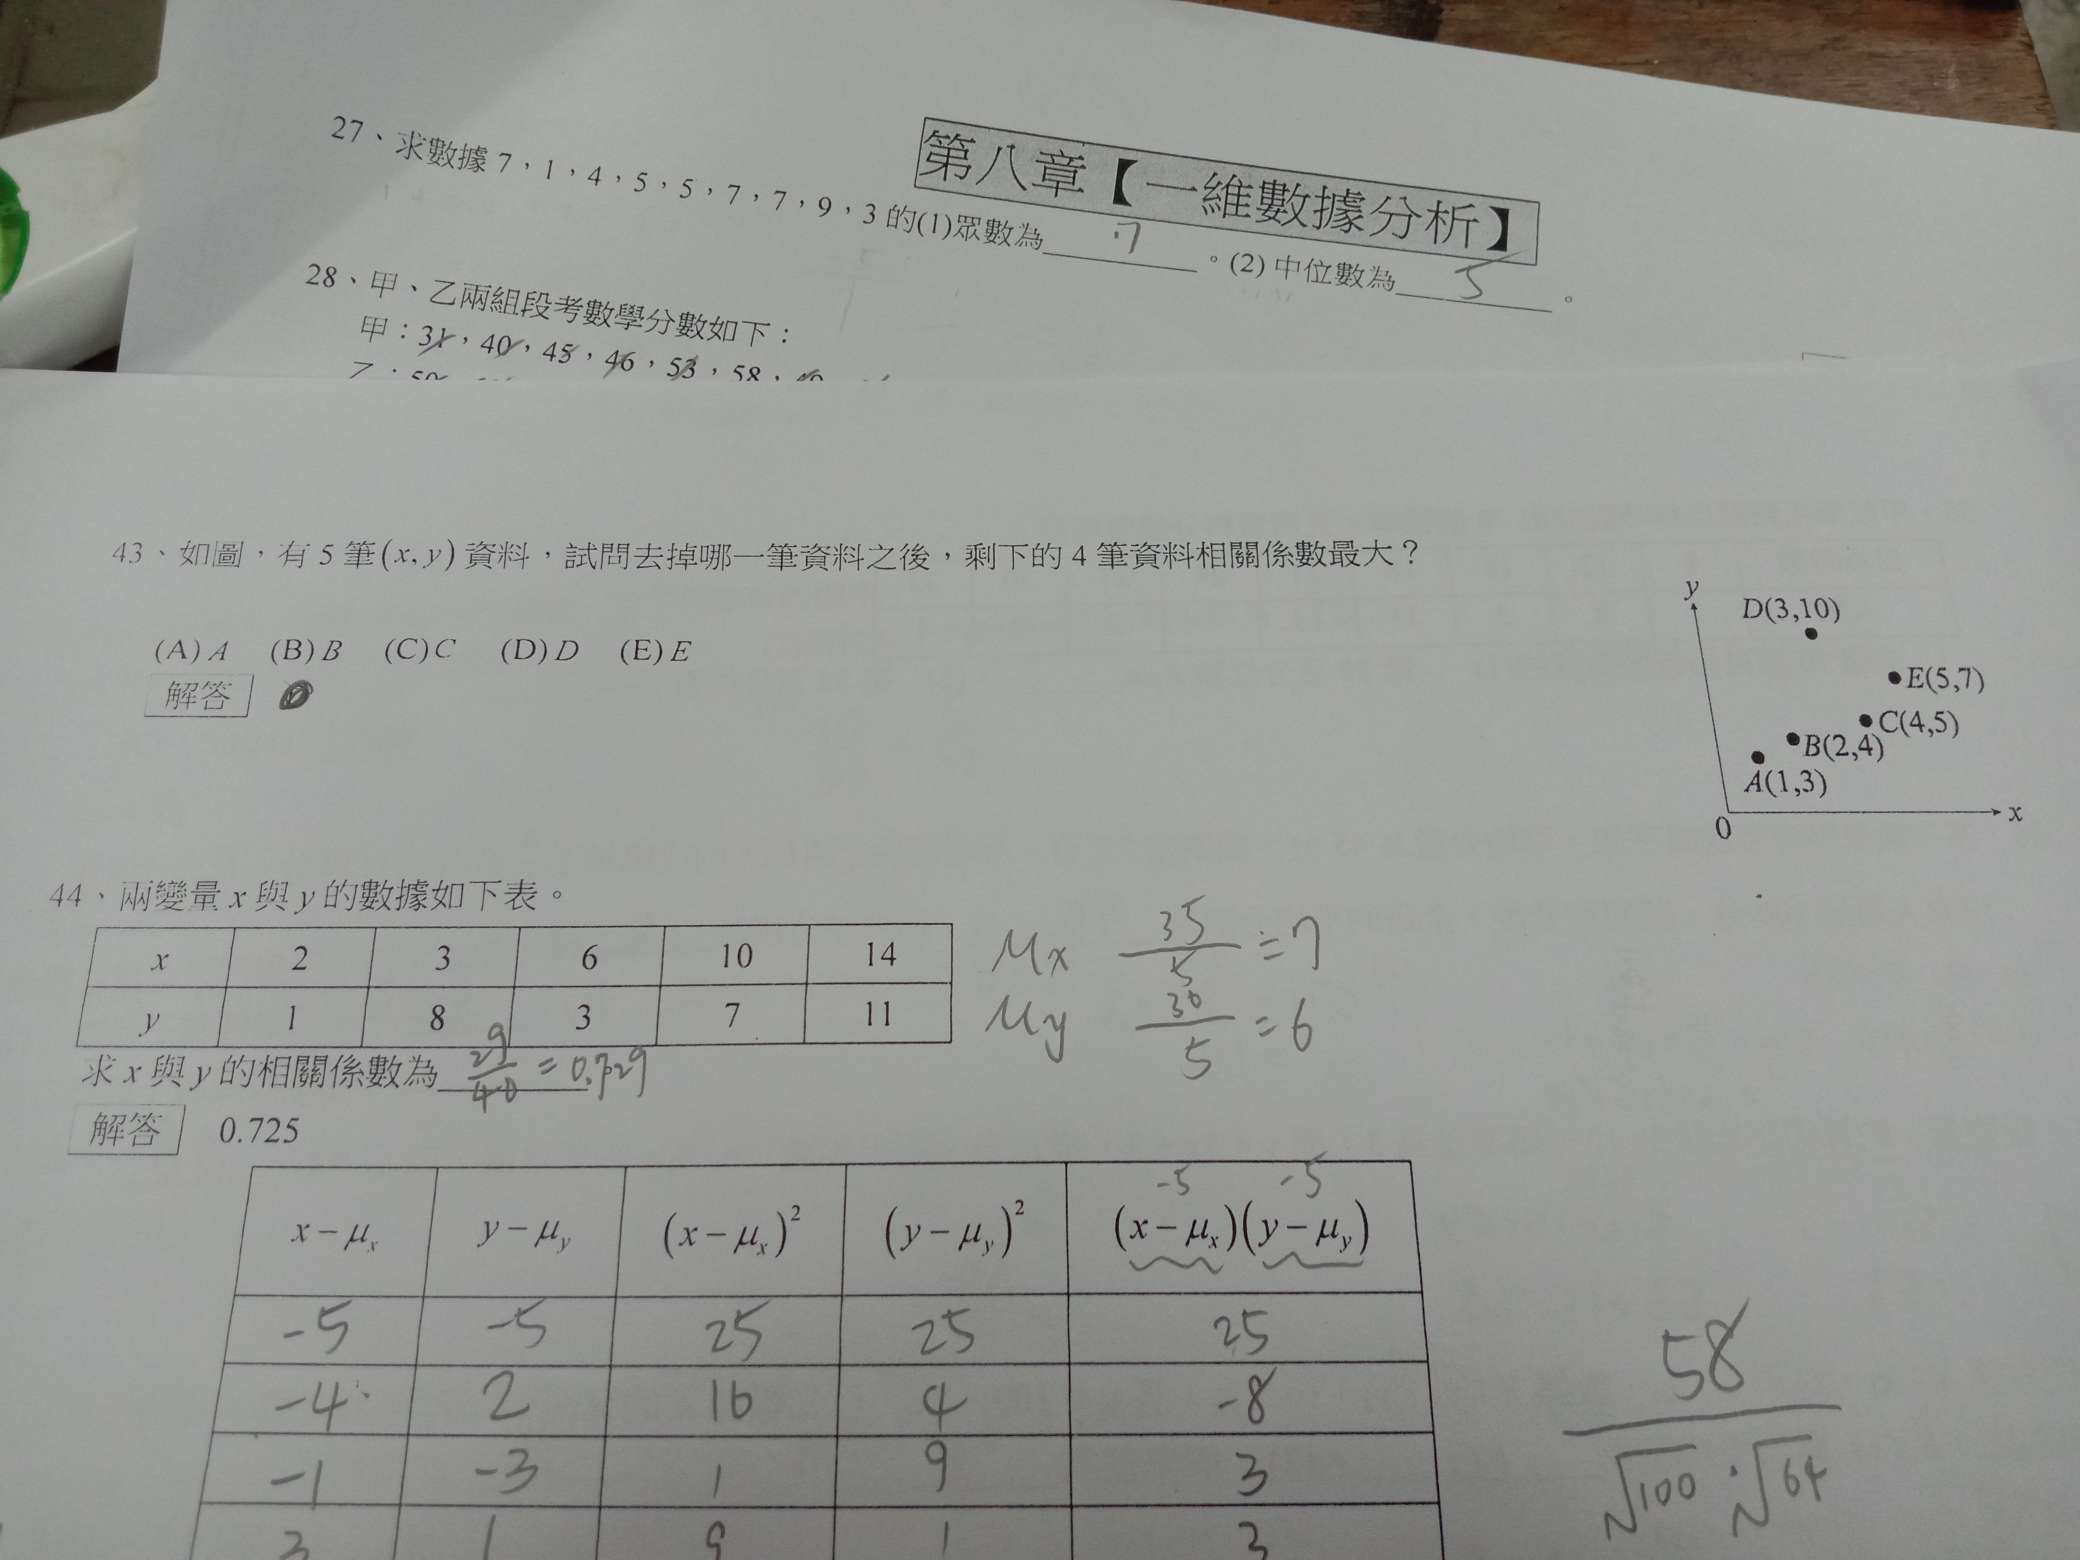 第八章【一維數據分析】
27、求數據 7，1，4，5，5，7，7，9，3 的(1)眾數為 7 。(2) 中位數為 5 。
28、甲、乙兩組段考數學分數如下：
甲：31，40，45，46，53，58，
43、如圖，有 5 筆(x, y) 資料，試問去掉哪一筆資料之後，剩下的 4 筆資料相關係數最大？
(A) A (B) B (C) C (D) D (E) E
解答
y
D(3,10)
E(5,7)
C(4,5)
B(2,4)
A(1,3)
0 x
44、兩變量 x 與 y 的數據如下表。
x 2 3 6 10 14
y 1 8 3 7 11
μx 35/5 = 7
μy 30/5 = 6
求 x 與 y 的相關係數為 29/40 = 0.729
解答 0.725
-5 -5
x − μx y − μy (x − μx)² (y − μy)² (x − μx)(y − μy)
-5 -5 25 25 25
-4 2 16 4 -8
-1 -3 1 9 3
3 1 9 1 3
58
√100 · √64